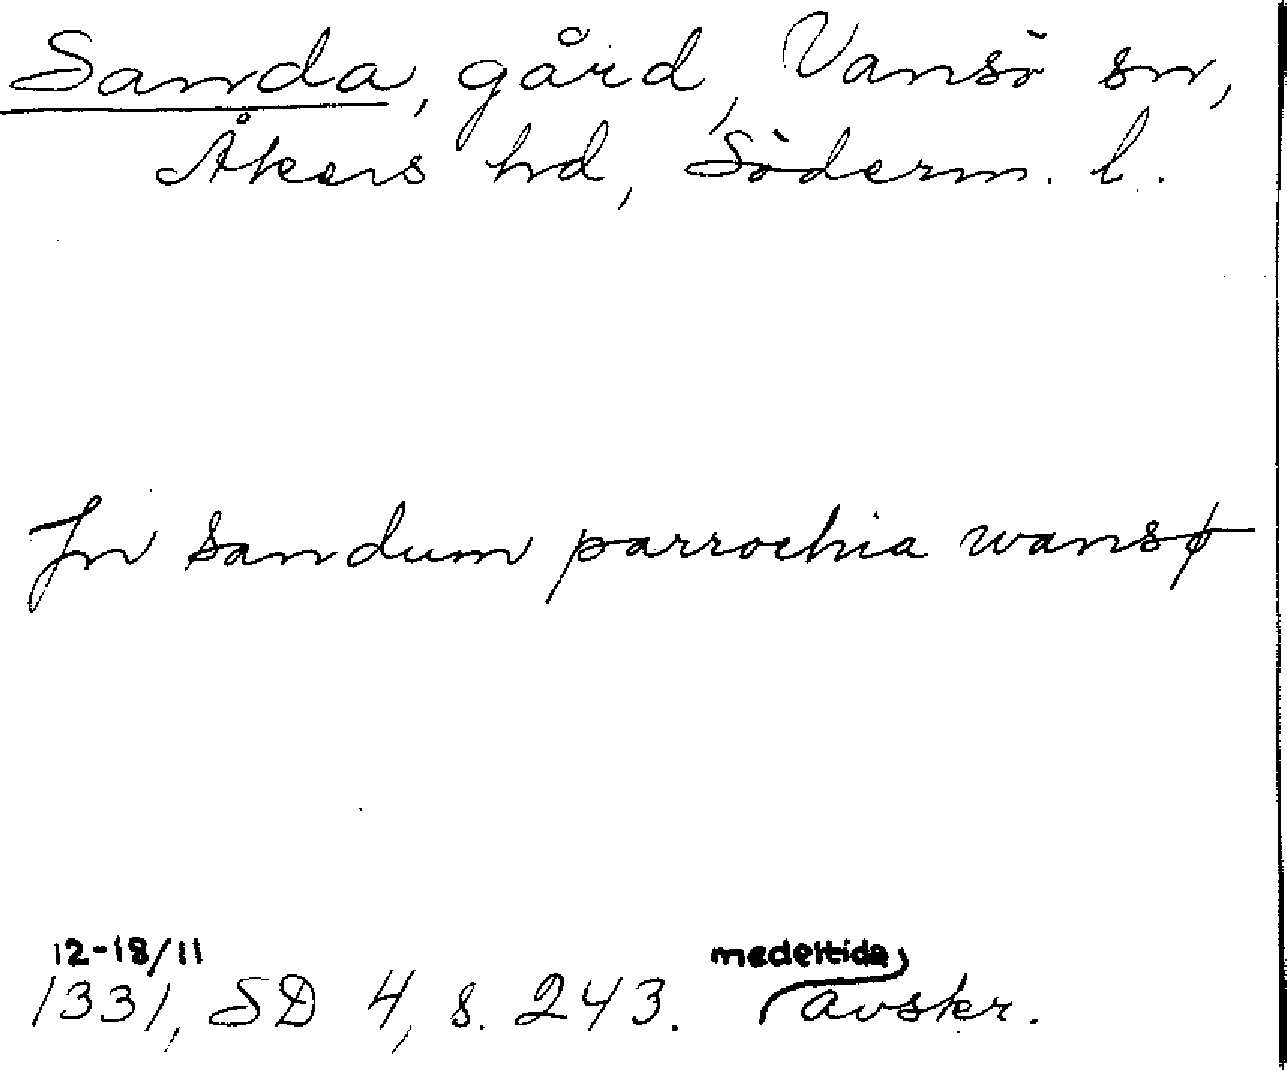 Sanda, gård, Vansö sn,
Åkers hd, Söderm. l.
Jn sandum parrochia wansø
12-18/11
1331, SD 4, s. 243. medeltida avskr.